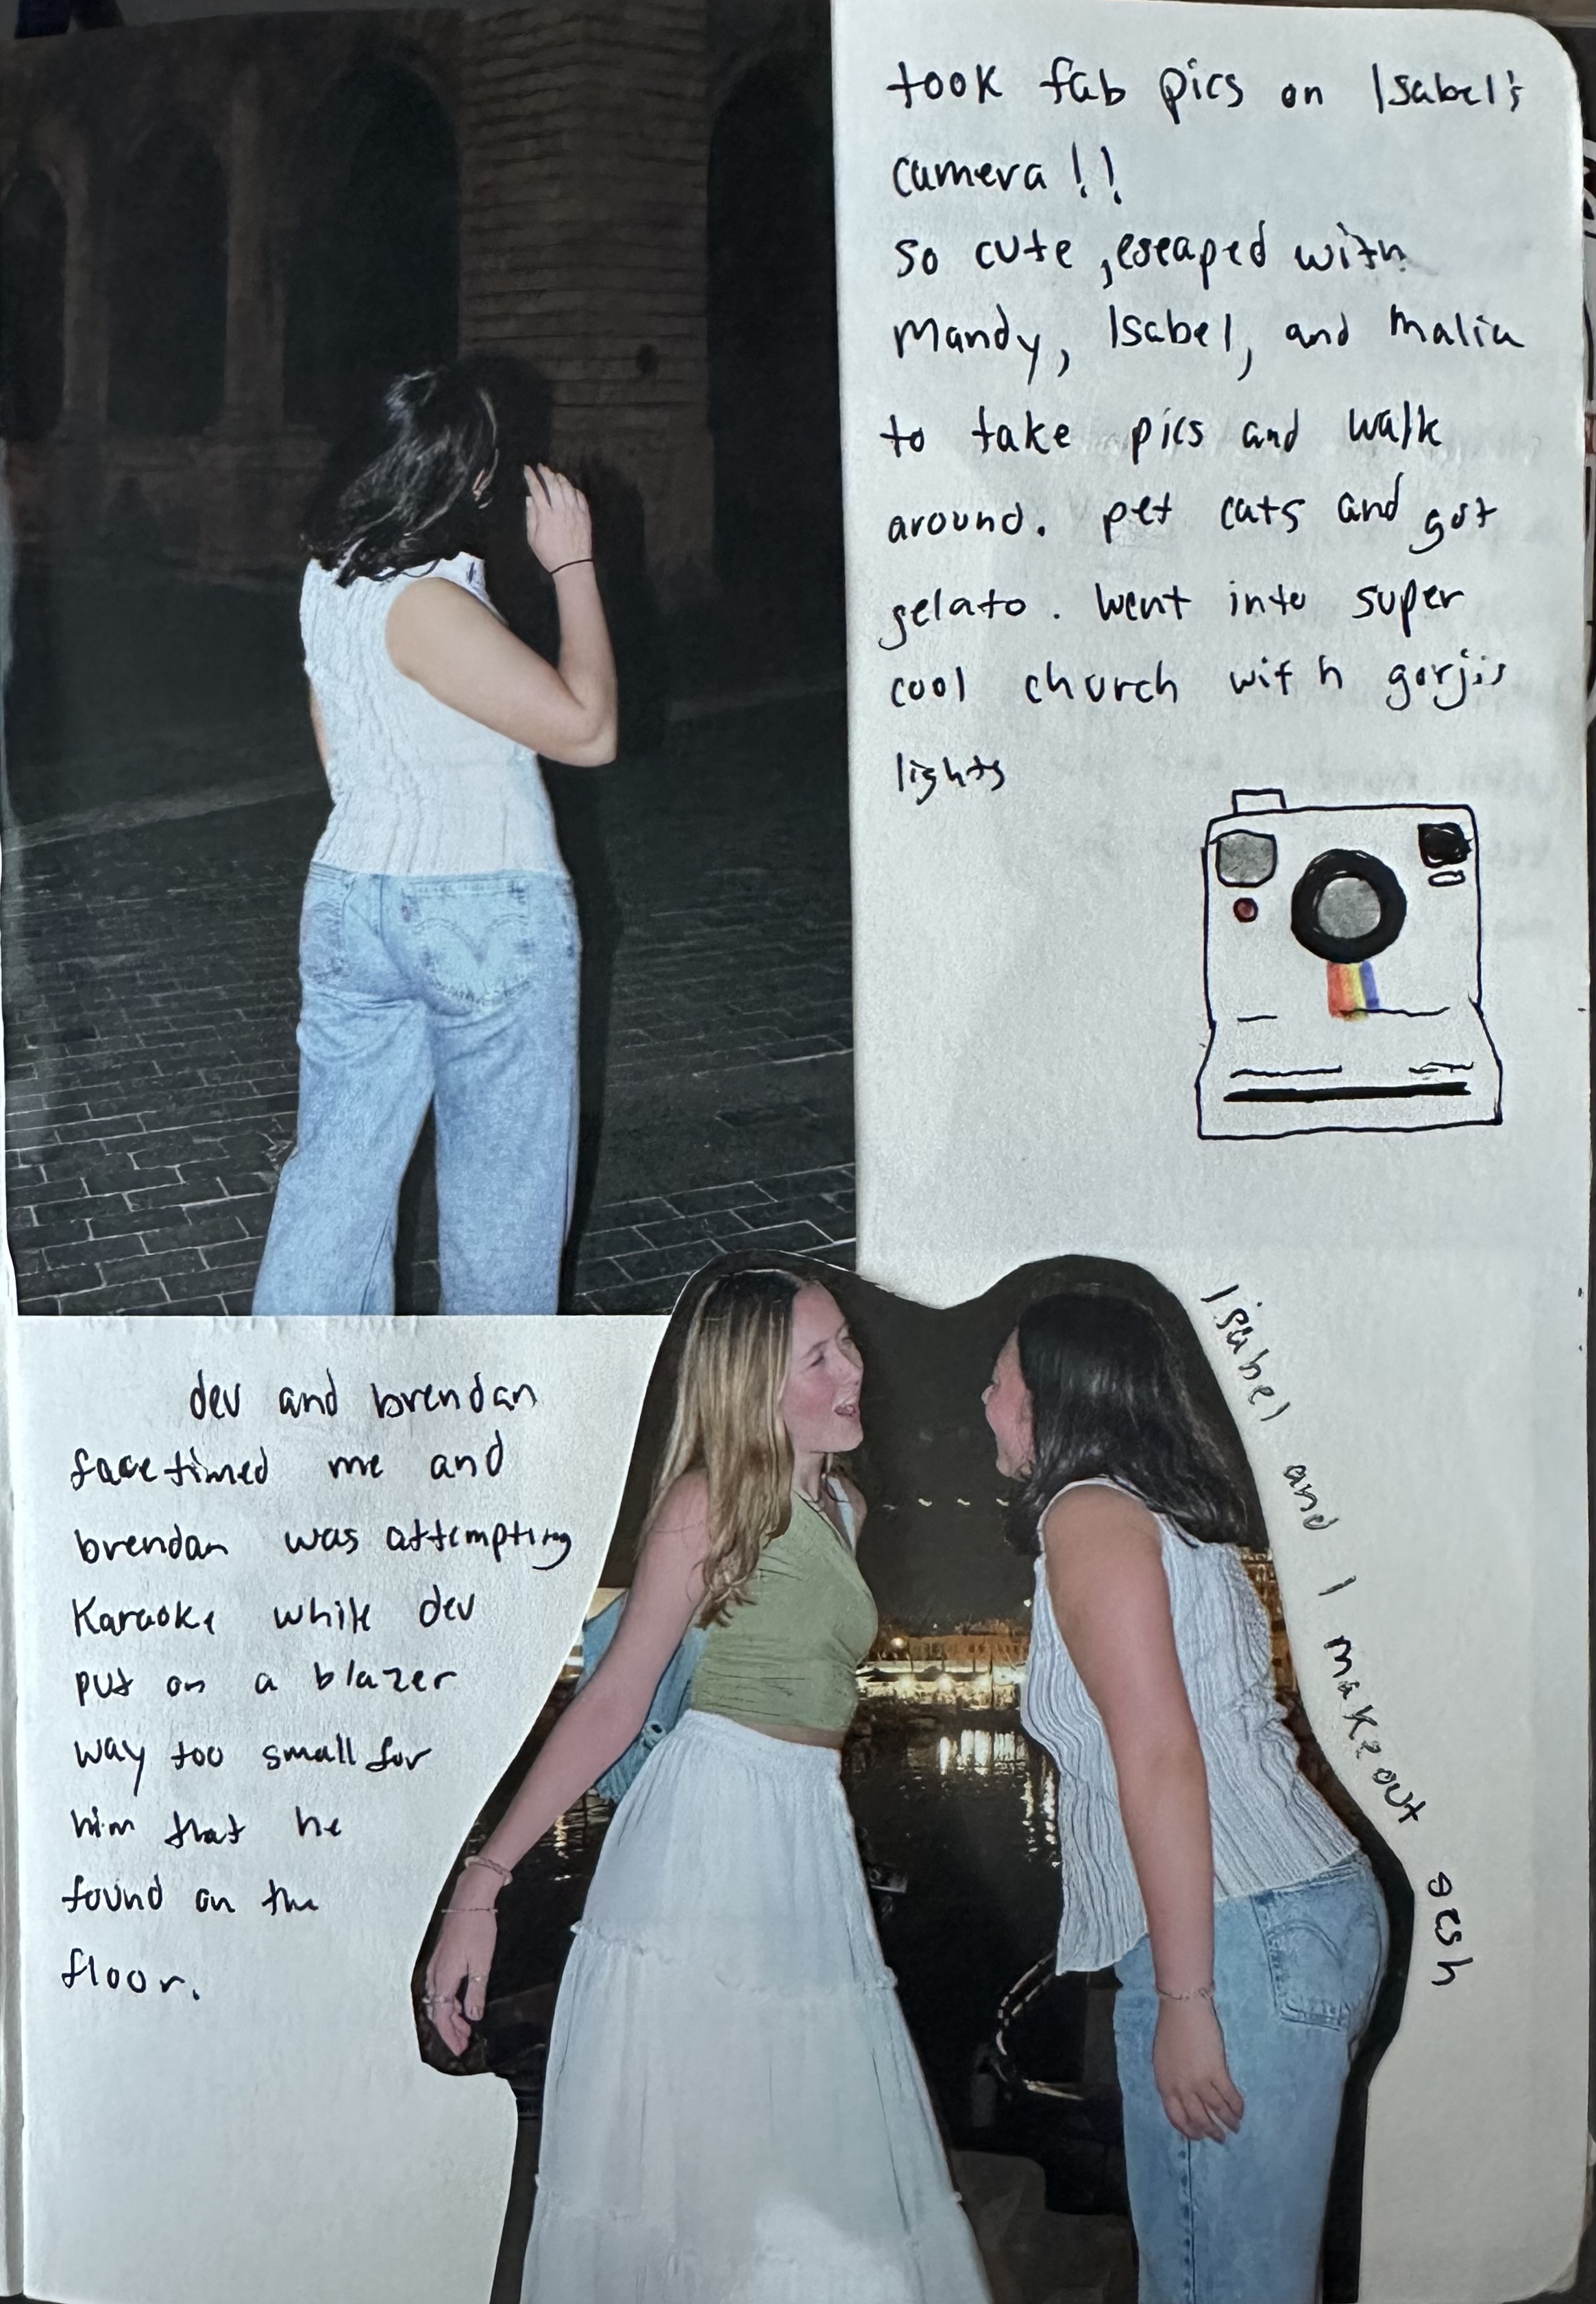 took fab pics on Isabel's
camera!!
so cute, escaped with
Mandy, Isabel, and Malia
to take pics and walk
around. pet cats and got
gelato. Went into super
cool church with gorjis
lights
dev and brendan
facetimed me and
brendan was attempting
Karaoke while dev
put on a blazer
way too small for
him that he
found on the
floor.
Isabel and I makeout sesh